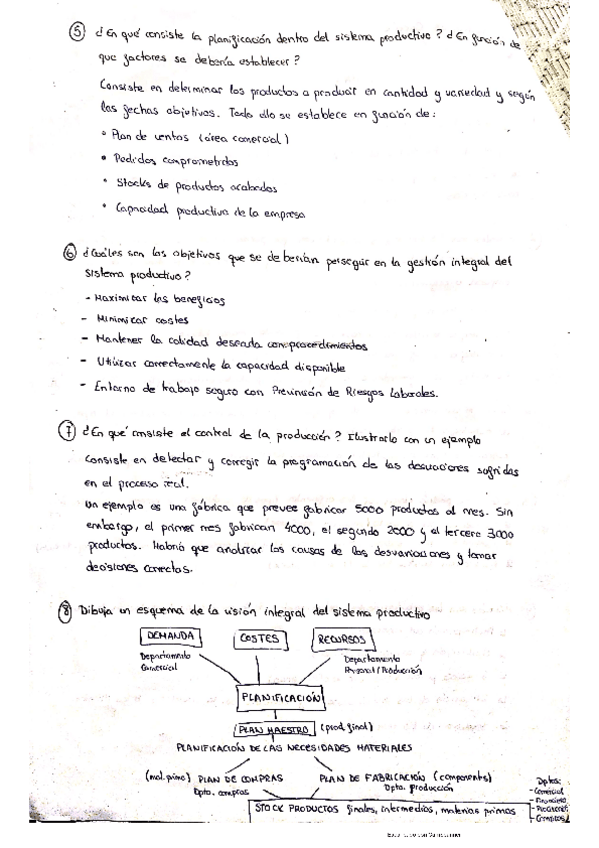 ⑤ ¿En qué consiste la planificación dentro del sistema productivo? ¿En función de
que factores se debería establecer?
Consiste en determinar los productos a producir en cantidad y variedad y según
las fechas objetivos. Todo ello se establece en función de:
• Plan de ventas (área comercial)
• Pedidos comprometidos
• Stocks de productos acabados
• Capacidad productiva de la empresa
⑥ ¿Cuáles son los objetivos que se deberían perseguir en la gestión integral del
sistema productivo?
- Maximizar los beneficios
- Minimizar costes
- Mantener la calidad deseada con procedimientos
- Utilizar correctamente la capacidad disponible
- Entorno de trabajo seguro con Prevención de Riesgos Laborales.
⑦ ¿En qué consiste el control de la producción? Ilustrarlo con un ejemplo
Consiste en detectar y corregir la programación de las desviaciones sufridas
en el proceso real.
Un ejemplo es una fábrica que prevee fabricar 5000 productos al mes. Sin
embargo, el primer mes fabrican 4000, el segundo 2000 y el tercero 3000
productos. Habría que analizar las causas de las desviaciones y tomar
decisiones correctas.
⑧ Dibuja un esquema de la visión integral del sistema productivo
DEMANDA COSTES RECURSOS
Departamento
Comercial
Departamento
Personal / Producción
PLANIFICACIÓN
PLAN MAESTRO (prod. final)
PLANIFICACIÓN DE LAS NECESIDADES MATERIALES
(mat. prima) PLAN DE COMPRAS PLAN DE FABRICACIÓN (components)
Dpto. compras Dpto. producción
STOCK PRODUCTOS finales, intermedios, materias primas
Dptos:
- Comercial
- Financiero
- Producción
- Compras